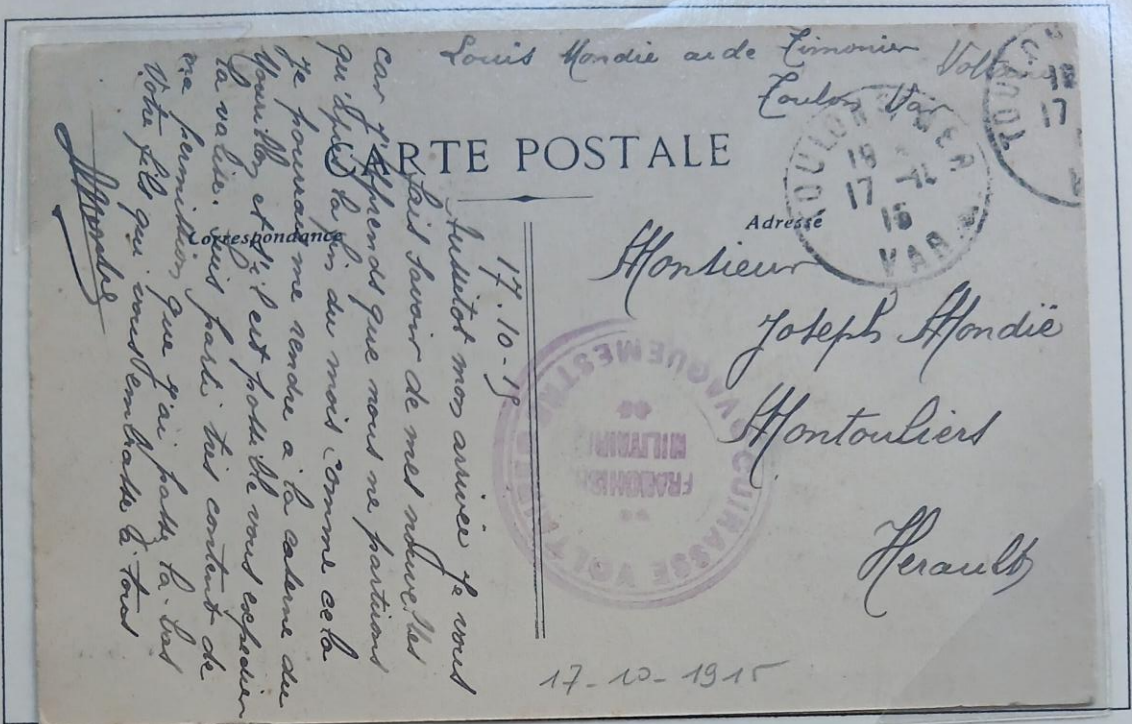 Louis Mondié aide Timonier Voltaire
Toulon Var
CARTE POSTALE
Correspondance
Adresse
TOULON S MER
19
17 -
15
VAR
TOUL
17
Monsieur
Joseph Mondié
Montouliers
Herault
CUIRASSE VOLTAIRE
VAGUEMESTRE
FRANCHISE
MILITAIRE
17-10-15
Aussitot mon arrivée je vous
fais savoir de mes nouvelles
car j'apprends que nous ne partirons
qu'après la fin du mois comme cela
je pourrai me rendre à la caserne du
Mourillon et s'il est possible vous expedier
la valise. suis parti très content de
ma permission que j'ai passé la bas
Votre fils qui vous embrasse à tous
Mondié
17-10-1915